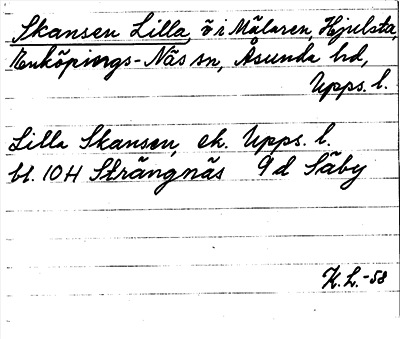 Skansen Lilla, ö i Mälaren, Hjulsta,
Enköpings-Näs sn, Åsunda hd,
Upps. l.
Lilla Skansen, ek. Upps. l.
bl. 10H Strängnäs 9d Säby
K.L.-58